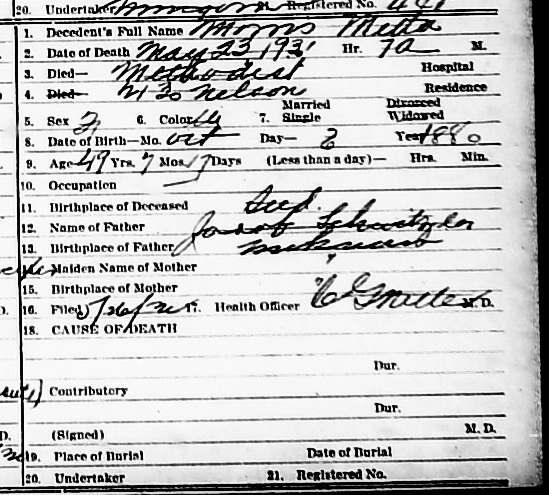 20. Undertaker Registered No. 441
1. Decedent's Full Name Morris Metta
2. Date of Death May 23, 193 Hr. 7a M.
3. Died— Methodist Hospital
4. Died— Nelson Residence
Married Divorced
5. Sex 6. Color W 7. Single Widowed
8. Date of Birth—Mo. Oct Day— Year 1880
9. Age 49 Yrs. 7 Mos. 17 Days (Less than a day)— Hrs. Min.
10. Occupation
11. Birthplace of Deceased Ind.
12. Name of Father Jacob
13. Birthplace of Father
Maiden Name of Mother "
15. Birthplace of Mother
16. Filed 5/26/ 17. Health Officer M. D.
18. CAUSE OF DEATH
Dur.
Contributory
Dur.
D. (Signed) M. D.
19. Place of Burial Date of Burial
20. Undertaker 21. Registered No.